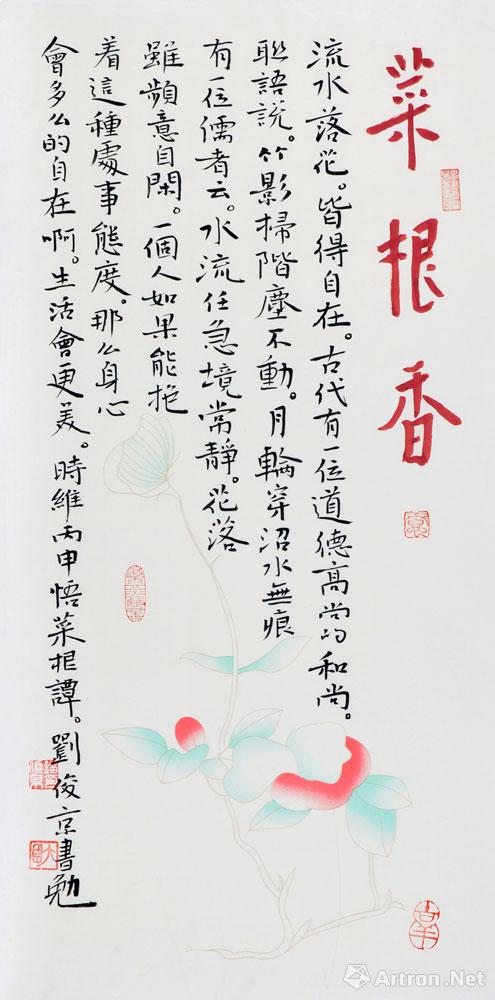 菜根香
流水落花。皆得自在。古代有一位道德高尚的和尚。
聯語説。竹影掃階塵不動。月輪穿沼水無痕
有一位儒者云。水流任急境常靜。花落
雖頻意自閑。一個人如果能抱
着這種處事態度。那么身心
會多么的自在啊。生活會更美。時維丙申悟菜根譚。劉俊京書勉
雅昌艺术网
Artron.Net